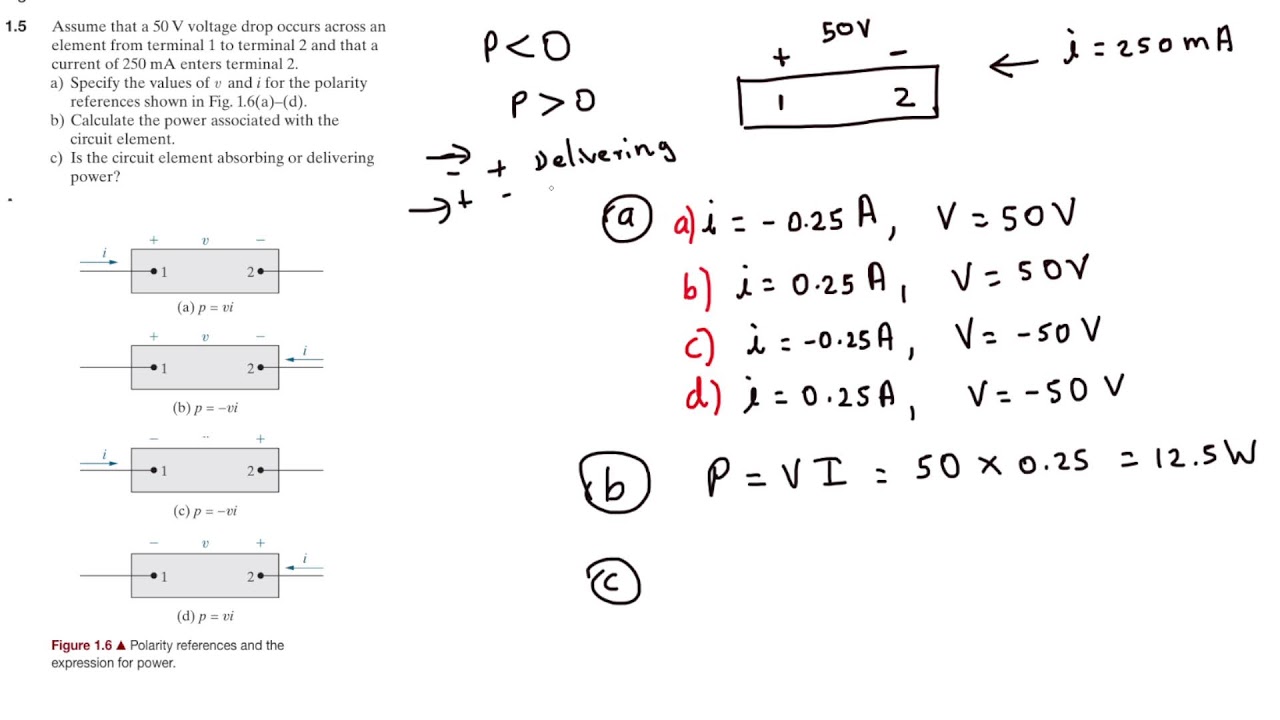 1.5 Assume that a 50 V voltage drop occurs across an
element from terminal 1 to terminal 2 and that a
current of 250 mA enters terminal 2.
a) Specify the values of v and i for the polarity
references shown in Fig. 1.6(a)–(d).
b) Calculate the power associated with the
circuit element.
c) Is the circuit element absorbing or delivering
power?
+ v −
i
1 2
(a) p = vi
+ v −
i
1 2
(b) p = −vi
− +
i
1 2
(c) p = −vi
− v +
i
1 2
(d) p = vi
Figure 1.6 ▲ Polarity references and the
expression for power.
P < 0
P > 0
→
- + Delivering
→ + -
50V
+ -
1 2
← i = 250mA
(a) a) i = - 0.25 A, V = 50V
b) i = 0.25 A, V = 50V
c) i = -0.25A, V = -50V
d) i = 0.25A, V = -50 V
(b) P = V I = 50 × 0.25 = 12.5W
(c)